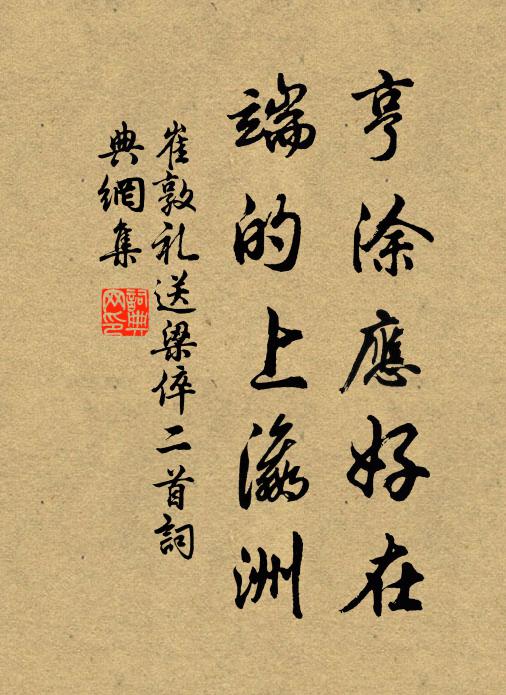 亨涂應好在
端的上瀛洲
崔敦礼送梁倅二首詞
典網集
詞典網印